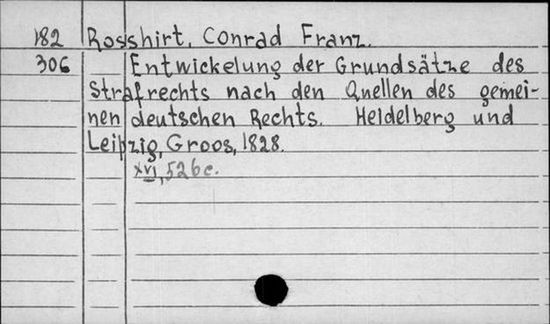 182 Rosshirt, Conrad Franz.
306 Entwickelung der Grundsätze des
Strafrechts nach den Quellen des gemei-
nen deutschen Rechts. Heidelberg und
Leipzig, Groos, 1828.
xvi, 526 c.